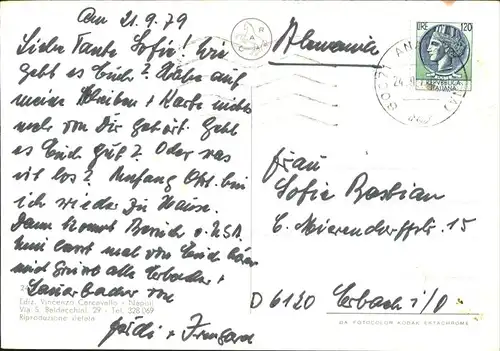 Am 21.9.79
Liebe Tante Sofie! Wie
geht es Euch? Habe auf
meine Schreiben + Karte nichts
mehr von Dir gehört. Geht
es Euch gut? Oder was
ist los? Anfang Okt. bin
ich wieder zu Hause.
Dann kommt Besuch v. USA.
mal von Euch hören
und Grüße alle Erbacher +
Lauerbacher von
+ Irmgard
24
Ediz. Vincenzo Carcavallo - Napoli
Via S. Baldacchini, 29 - Tel. 328 069
Riproduzione vietata
Alemania
LIRE 120
REPUBBLICA
ITALIANA
Frau
Sofie Bastian
C. Mierendorffstr. 15
D 6120 Erbach i/O
MA FOTOCOLOR KODAK EKTACHROME